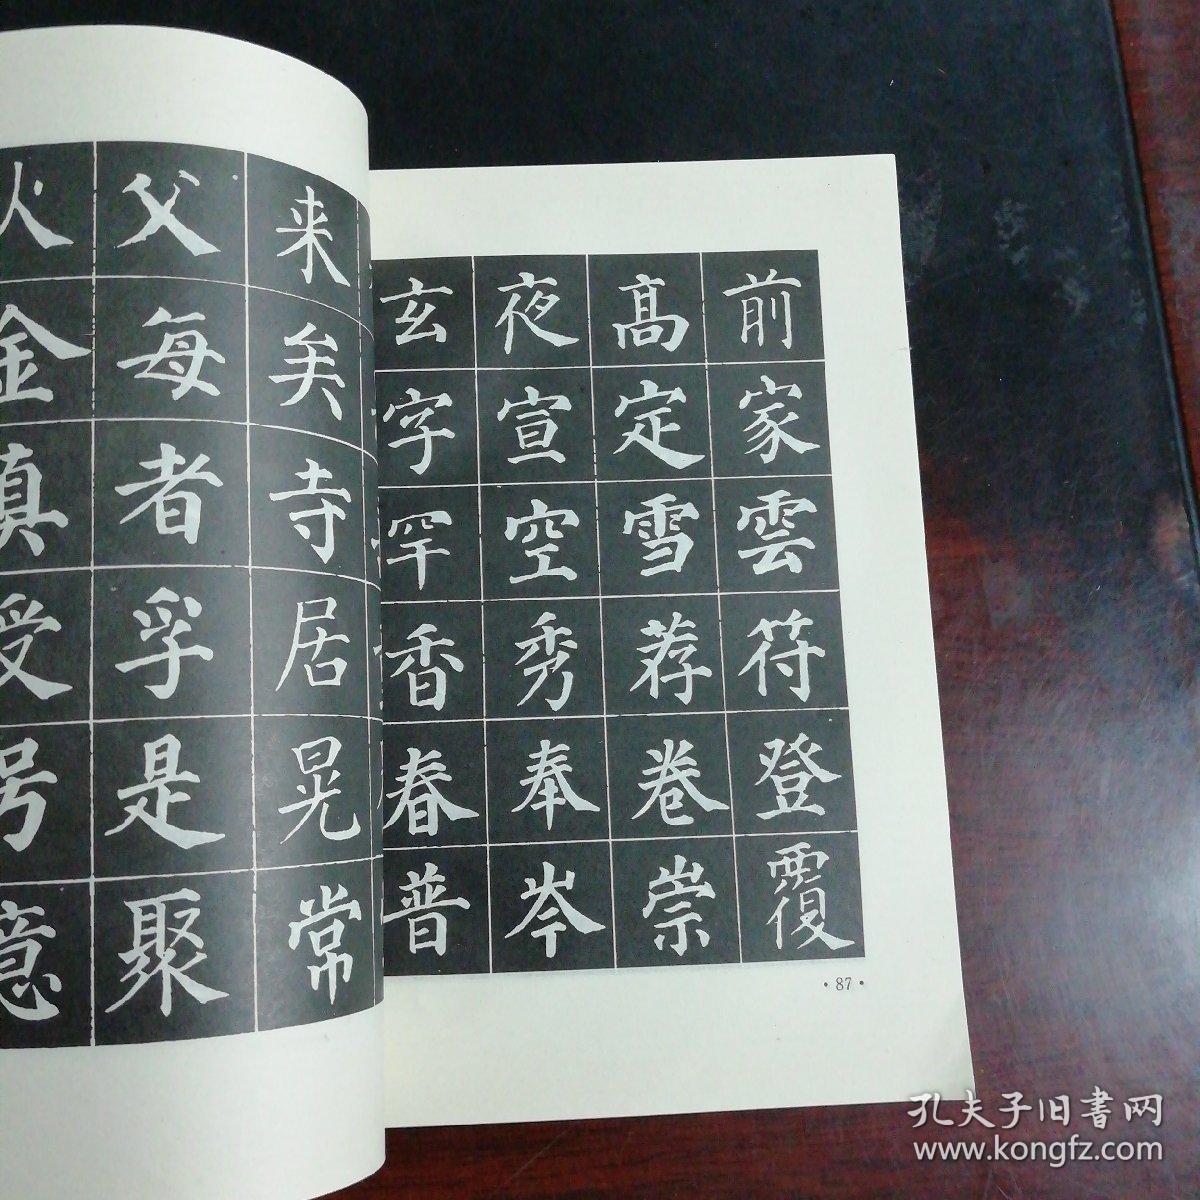 来矣寺居晃常
父每者孚是聚
火金真受号意
前家雲符登覆
髙定雪荐卷崇
夜宣空秀奉岑
玄字罕香春普
·87·
孔夫子旧书网
www.kongfz.com